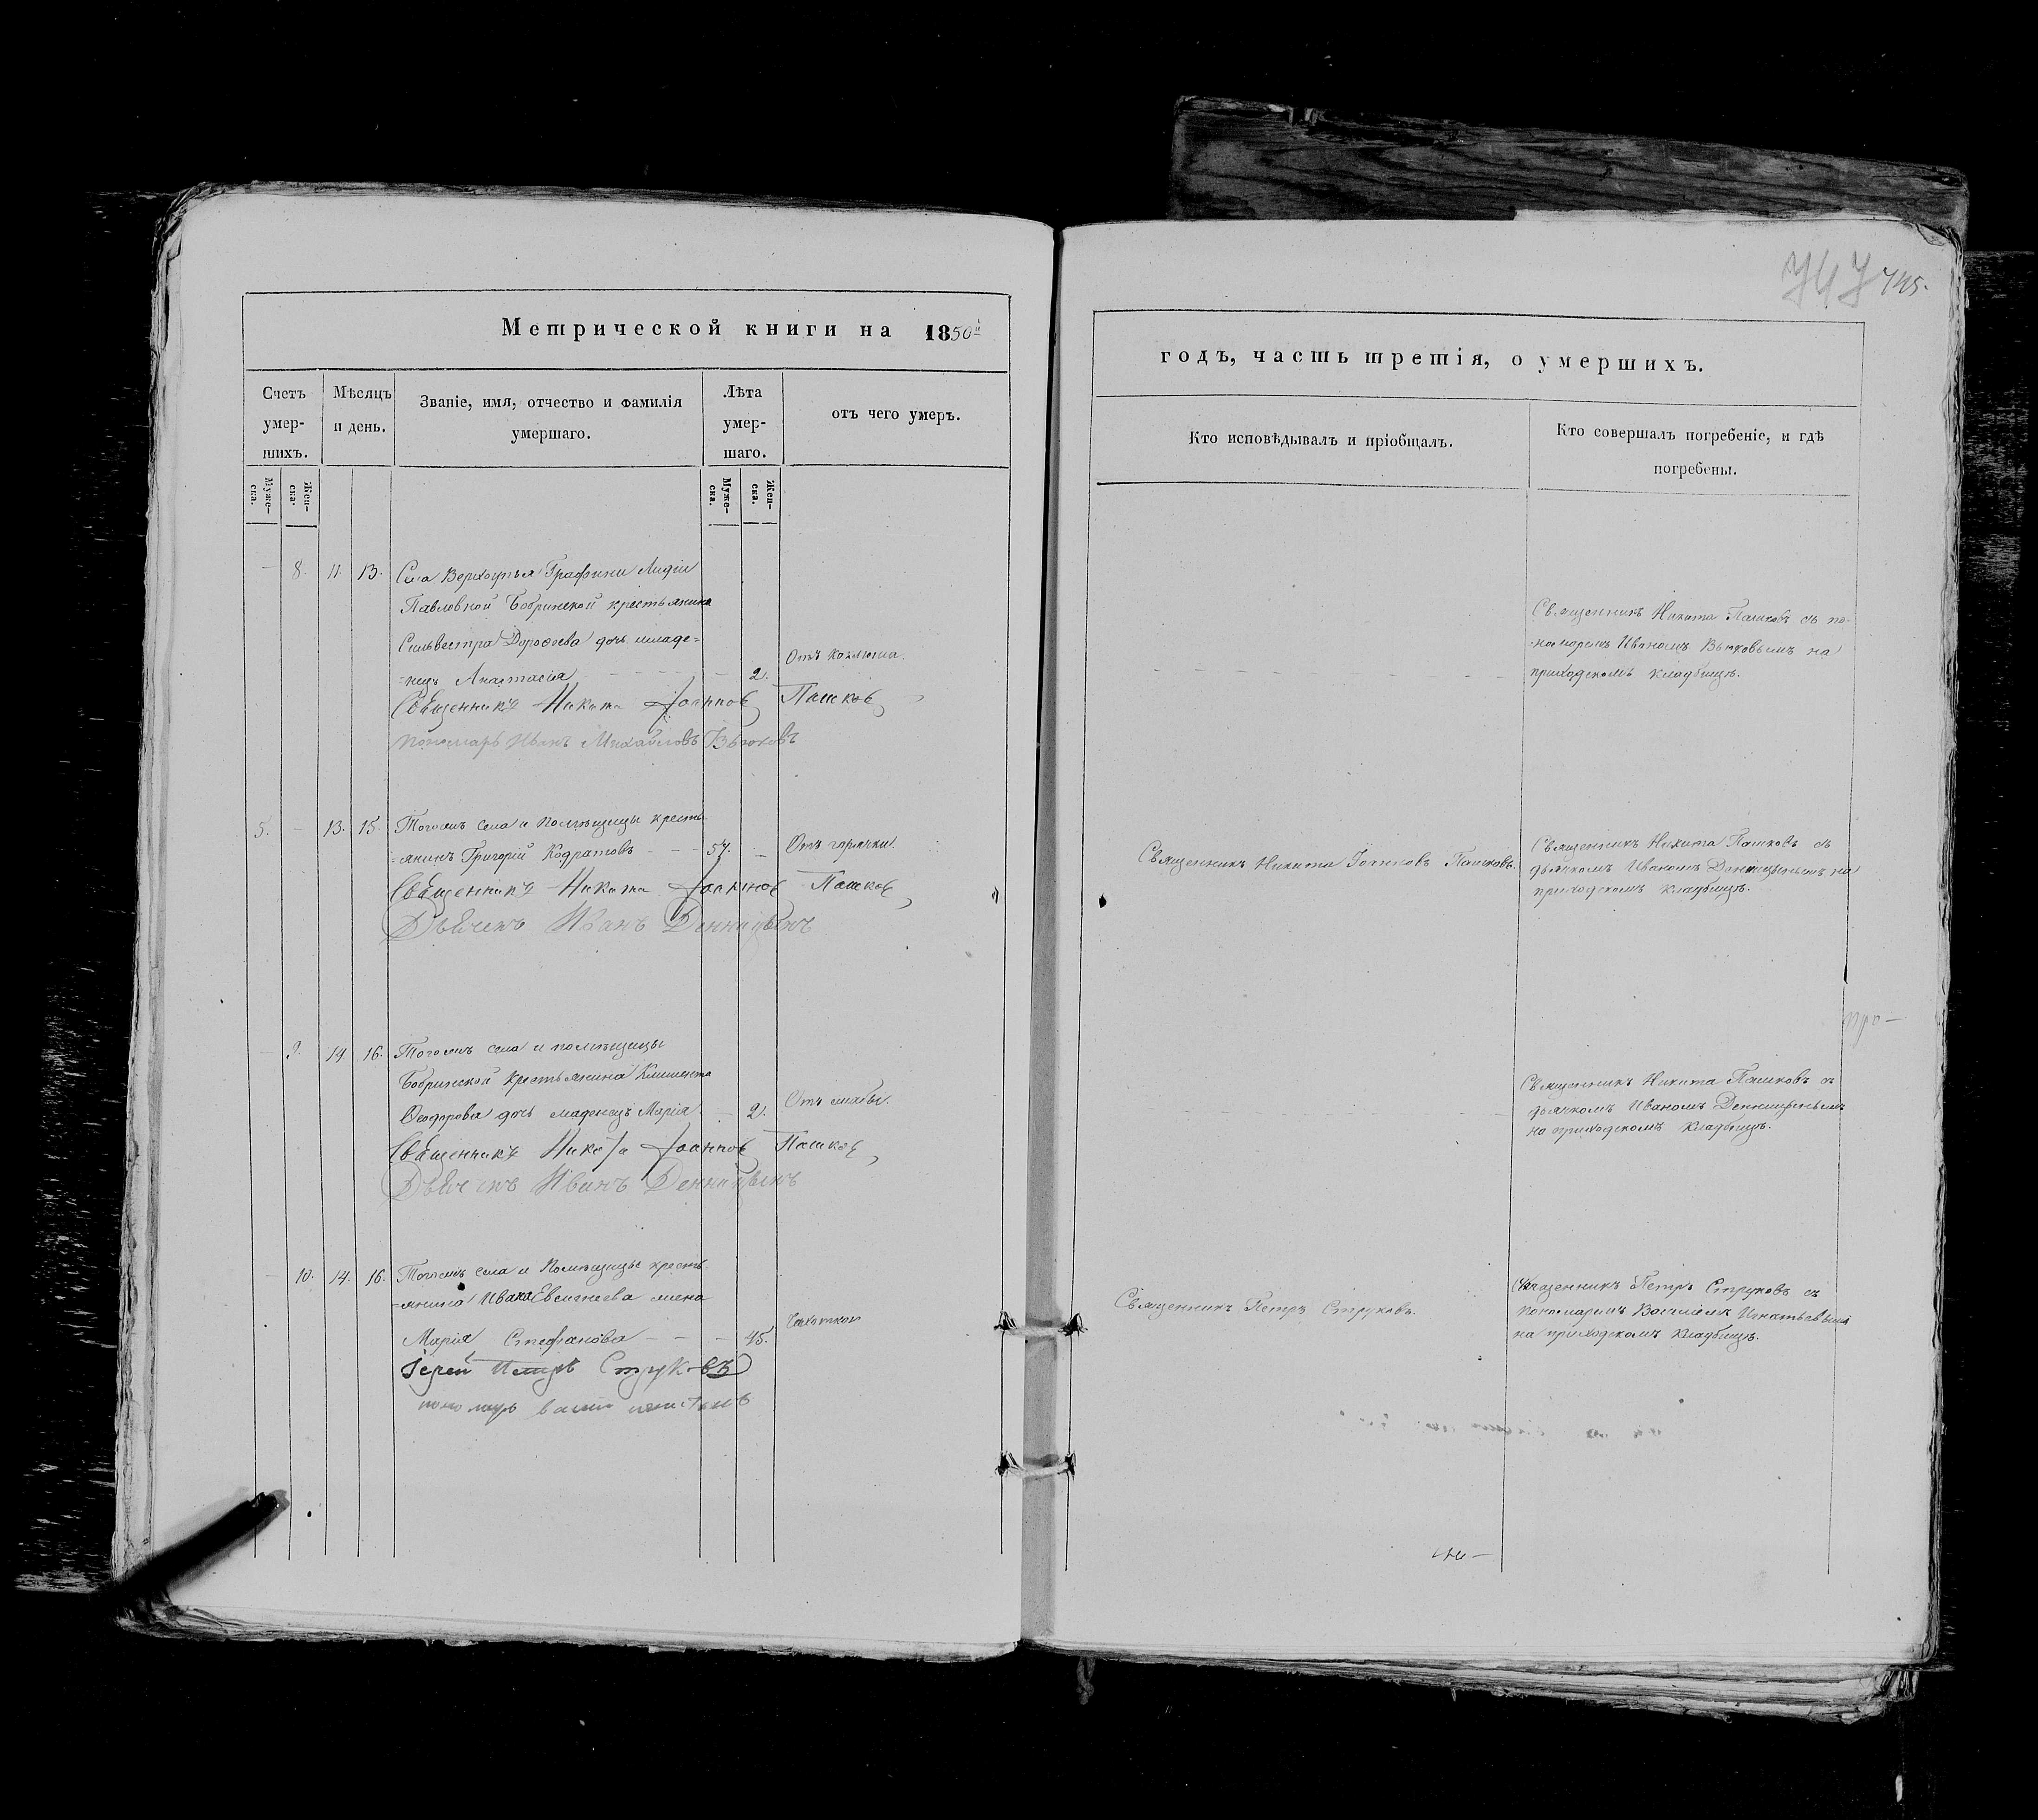 747 745.
Метрической книги на 1850й
годъ, часть третія, о умершихъ.
Счетъ умер-шихъ.
Мѣсяцъ и день.
Званіе, имя, отчество и фамилія умершаго.
Лѣта умер-шаго.
отъ чего умеръ.
Кто исповѣдывалъ и пріобщалъ.
Кто совершалъ погребеніе, и гдѣ погребены.
Муже-ска.
Жен-ска.
Муже-ска.
Жен-ска.
— 8. 11. 13. Села Верхоупья Графини Лидіи
Павловной Бобринской крестьянина
Сильвестра Дороѳеева дочь младе-
-нецъ Анастасія — — — — 2.
Отъ коклюша.
Священникъ Никита Іоанновъ Пашковъ
Пономарь Иванъ Михайловъ Вьюковъ
Священникъ Никита Пашковъ съ по-
-номоремъ Иваномъ Вьюковымъ на
приходскомъ кладбищѣ.
5. — 13. 15. Тогожъ села и помѣщицы кресть-
-янинъ Григорій Кодратовъ — — — 57. —
Отъ горячки.
Священникъ Никита Іоанновъ Пашковъ
Дьячекъ Иванъ Денницынъ
Священникъ Никита Іоанновъ Пашковъ.
Священникъ Никита Пашковъ съ
дьячкомъ Иваномъ Денницынымъ на
приходскомъ кладбищѣ.
про—
— 9. 14 16. Тогожъ села и помѣщицы
Бобринской крестьянина Климента
Ѳеодорова дочь младенецъ Марія — 2.
Священникъ Никита Іоанновъ Пашковъ
Дьячекъ Иванъ Денницынъ
Священникъ Никита Пашковъ съ
дьячкомъ Иваномъ Денницынымъ
на приходскомъ кладбищѣ.
— 10. 14. 16. Тогожъ села и Помѣщицы кресть-
-янина Ивана Евсигнеева жена
Марія Стефанова — — — 45.
Чахоткой
Іерей Петръ Струковъ
Священникъ Петръ Струковъ.
Священникъ Петръ Струковъ съ
пономаремъ Василіемъ Игнатьевымъ
на приходскомъ кладбищѣ.